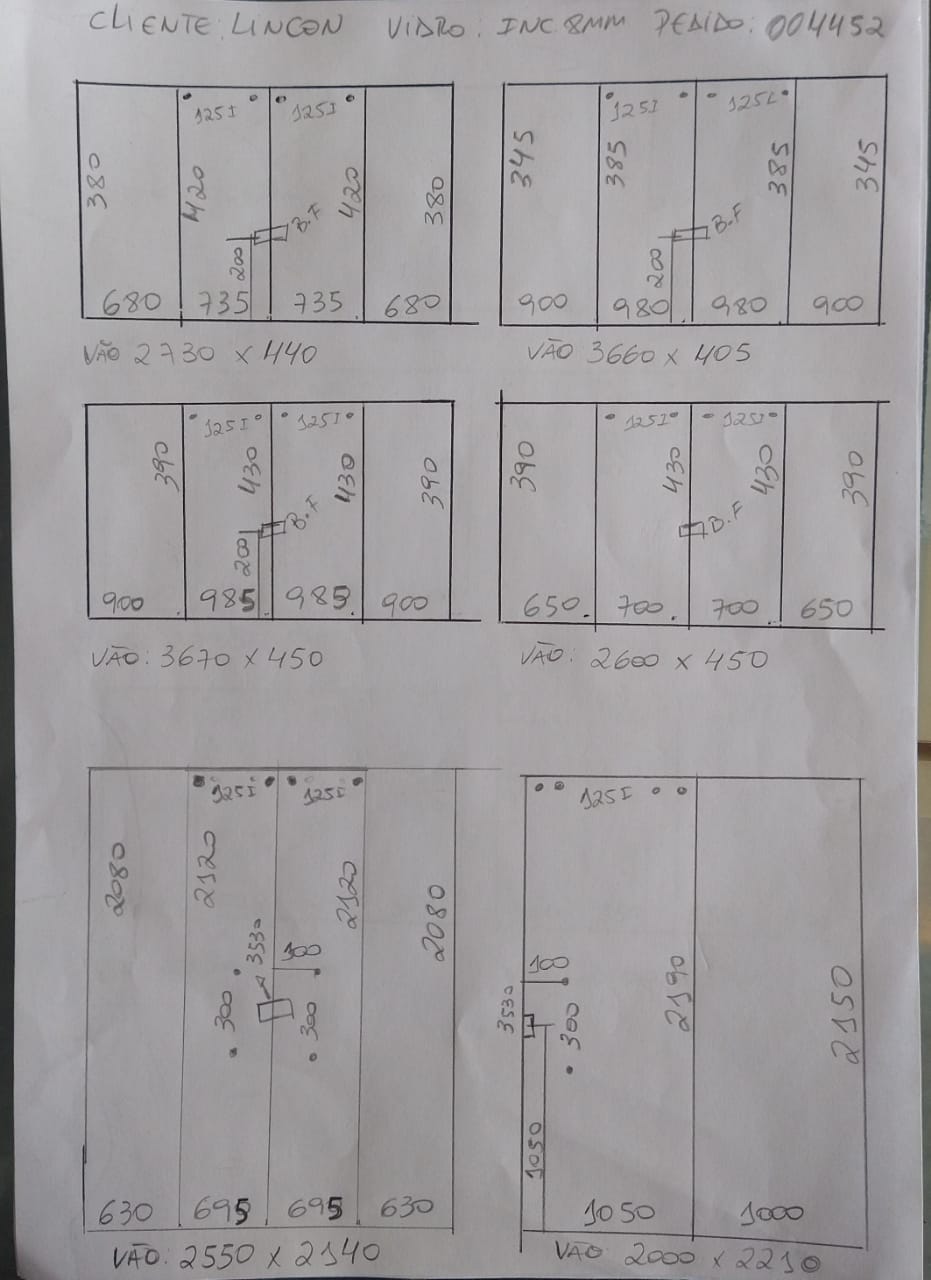 CLIENTE: LINCON VIDRO: INC. 8MM PEDIDO: 004452
125I 125I
380 420 420 380
B.F
200
680 735 735 680
VÃO 2730 x 440
125I 125L
345 385 385 345
B.F
200
900 980 980 900
VÃO 3660 x 405
125I 125I
390 430 430 390
B.F
200
900 985 985 900
VÃO: 3670 x 450
125I 125I
390 430 430 390
B.F
650 700 700 650
VÃO: 2600 x 450
125I 125I
2080 2120 2120 2080
3530 100
300 300
630 695 695 630
VÃO: 2550 x 2140
125I
100
3530 300 2190 2150
1050
1050 1000
VÃO 2000 x 2210